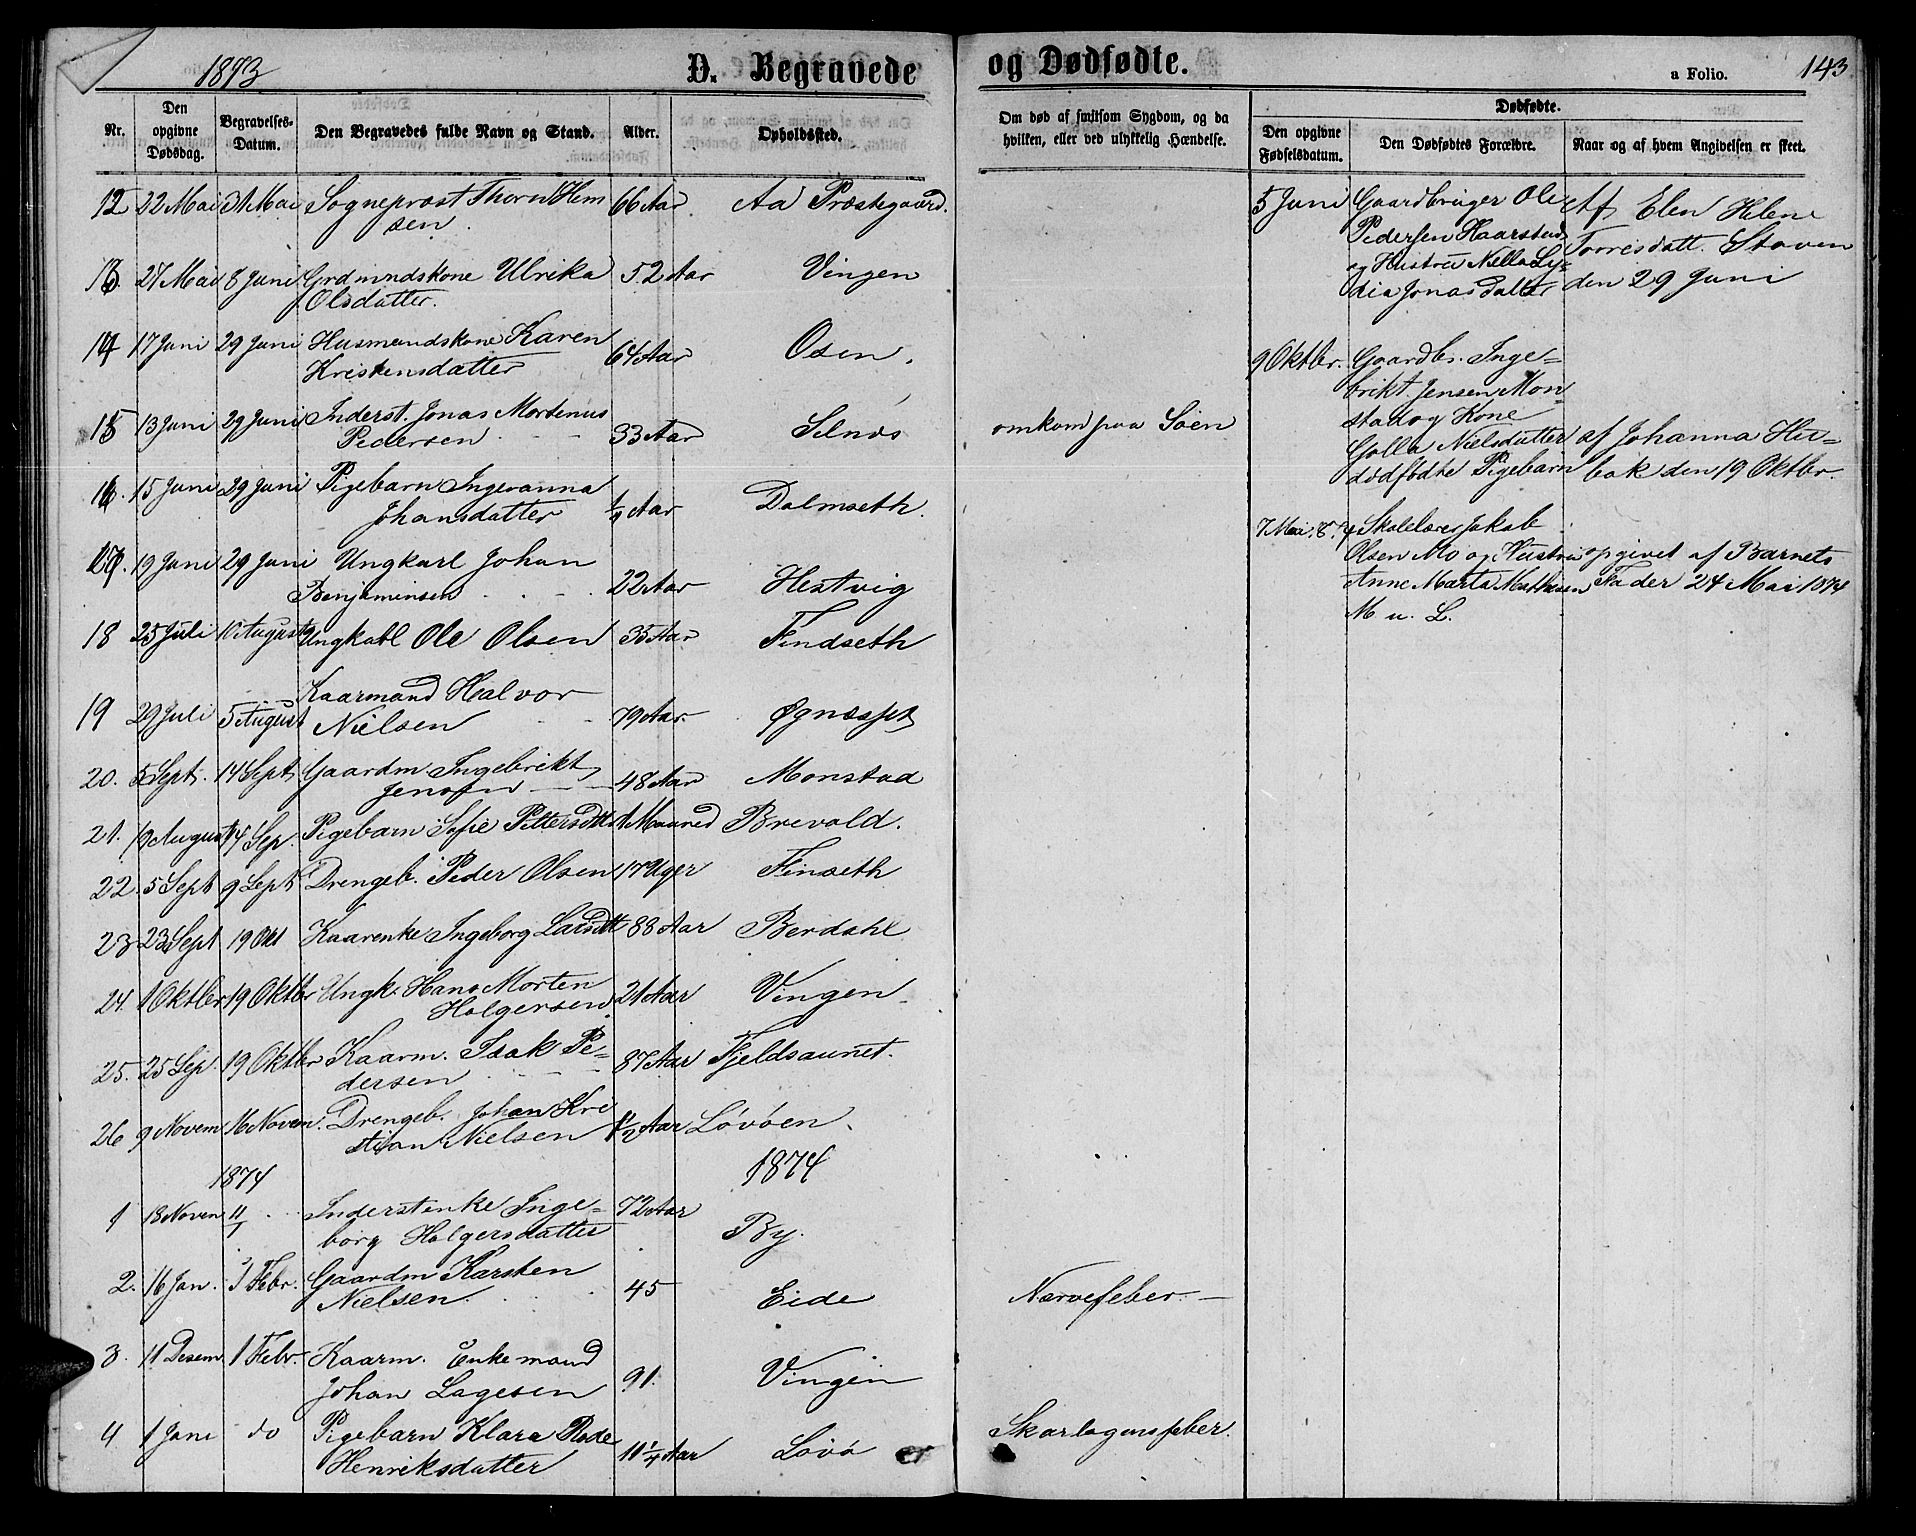 1873
D. Begravede
og Dødfødte.
a Folio.
143
Nr.
Den opgivne Dødsdag.
Begravelses-Datum.
Den Begravedes fulde Navn og Stand.
Alder.
Opholdssted.
Om død af smitsom Sygdom, og da hvilken, eller ved ulykkelig Hændelse.
Dødfødte.
Den opgivne Fødselsdatum.
Den Dødfødtes Forældre.
Naar og af hvem Angivelsen er skeet.
12 22 Mai 31 Mai Sogneprost Thorv Hem 66 Aar Aa Præstegaard.
sen.
13. 27 Mai 8 Juni Grdmndskone Ulrika 52 Aar Vingen
Olsdatter.
14 17 Juni 29 Juni Husmandskone Karen 64 Aar Osen.
Kristensdatter
15 13 Juni 29 Juni Inderst. Jonas Mortenus 33 Aar Selnæs omkom paa Söen
Pedersen
16. 15 Juni 29 Juni Pigebarn Ingeranna 1/4 Aar Dalmseth.
Johansdatter
17. 19 Juni 29 Juni Ungkarl Johan 22 Aar Hestvig
Benjaminsen
18 25 Juli 10 August Ungkarl Ole Olsen 35 Aar Findseth
19 29 Juli 5 August Kaarmand Halvor 79 Aar
Nielsen
20. 5 Sept. 14 Sept Gaardm Ingebrikt 48 Aar Monstad
Jensen
21. 19 August 14 Sep. Pigebarn Sofie Pettersdtt 1 Maaned Brevold.
22. 5 Sept 9 Sept Drengeb. Peder Olsen 17 Uger Finseth
23 23 Sept 19 Okt Kaarenke Ingeborg Larsdtt 88 Aar Berdahl
24. 1 Oktber 19 Oktbr Ungk. Hans Morten 21 Aar Vingen
Holgersen
25. 25 Sep. 19 Oktbr Kaarm. Isak Pe- 87 Aar Fjeldsaunet.
dersen
26 9 Novem 16 Novem. Drengeb. Johan Kri 1/2 Aar Lövöen
stian Nielsen
1874
1874
1 18 Noven 11/1 Inderstenke Inge- 72 Aar By.
borg Holgersdatter
2. 16 Jan. 1 Febr. Gaardm Karsten 45 Eide Nervefeber.
Nielsen.
3. 11 Desem 1 Febr. Kaarm. Enkemand 91. Vingen
Johan Lagesen
4 1 Jani do Pigebarn Klara Rode 11 1/4 Aar Lövö Skarlagensfeber.
Henriksdatter
5 Juni Gaardbruger Ole Af Elen Helene
Pedersen Haarstad Torresdatt. Stoven
og Hustru Nella Ly- den 29 Juni
dia Jonasdatter
9 Oktbr. Gaardbr. Inge-
brikt Jensen Mon
stad og Kone
Golla Nielsdatter af Johanna Hu-
dødfødte Pigebarn bak den 19 Oktbr.
7 Mai. Skolelærer Jakob
Olsen Mo og Hustru opgivet af Barnets
Anne Marta Fader 24 Mai 1874
M u. L.